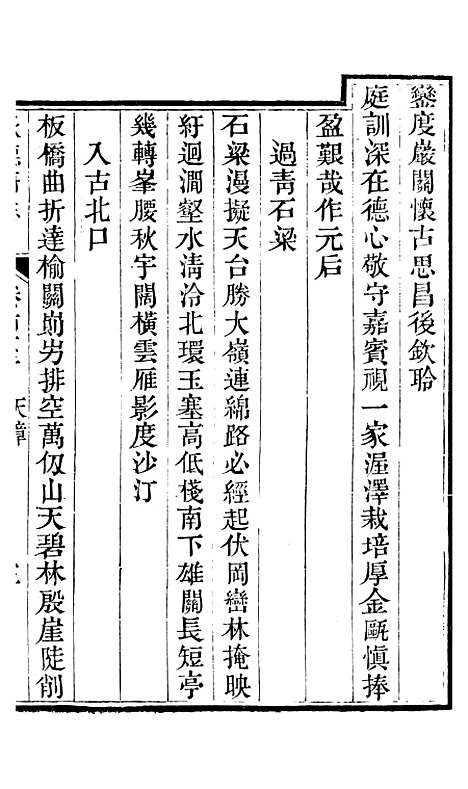 鑾度巖關懷古思昌後欽聆
庭訓深在德心敬守嘉賓視一家渥澤栽培厚金甌慎捧
盈艱哉作元后
過青石梁
石梁漫擬天台勝大嶺連綿路必經起伏岡巒林掩映
紆迴澗壑水清泠北環玉塞高低棧南下雄關長短亭
幾轉峯腰秋宇闊橫雲雁影度沙汀
入古北口
板橋曲折達榆關崱屴排空萬仭山天碧林殷崖陡削
天章